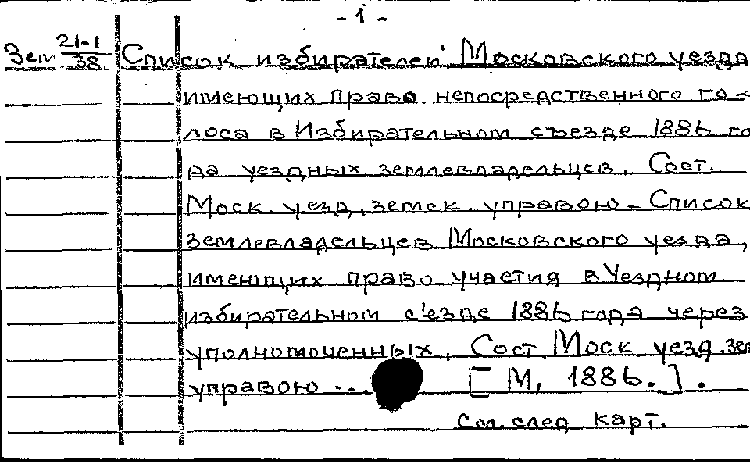 - 1 -
Зем 21-1/38 Список избирателей Московского уезда
имеющих право непосредственного го-
лоса в Избирательном съезде 1886 го
да уездных землевладельцев. Сост.
Моск. уезд. земск. управою - Список
землевладельцев Московского уезда,
имеющих право участия в Уездном
избирательном с'езде 1886 года через
уполномоченных, Сост Моск уезд. зем
управою .. [М, 1886.].
См. след карт.